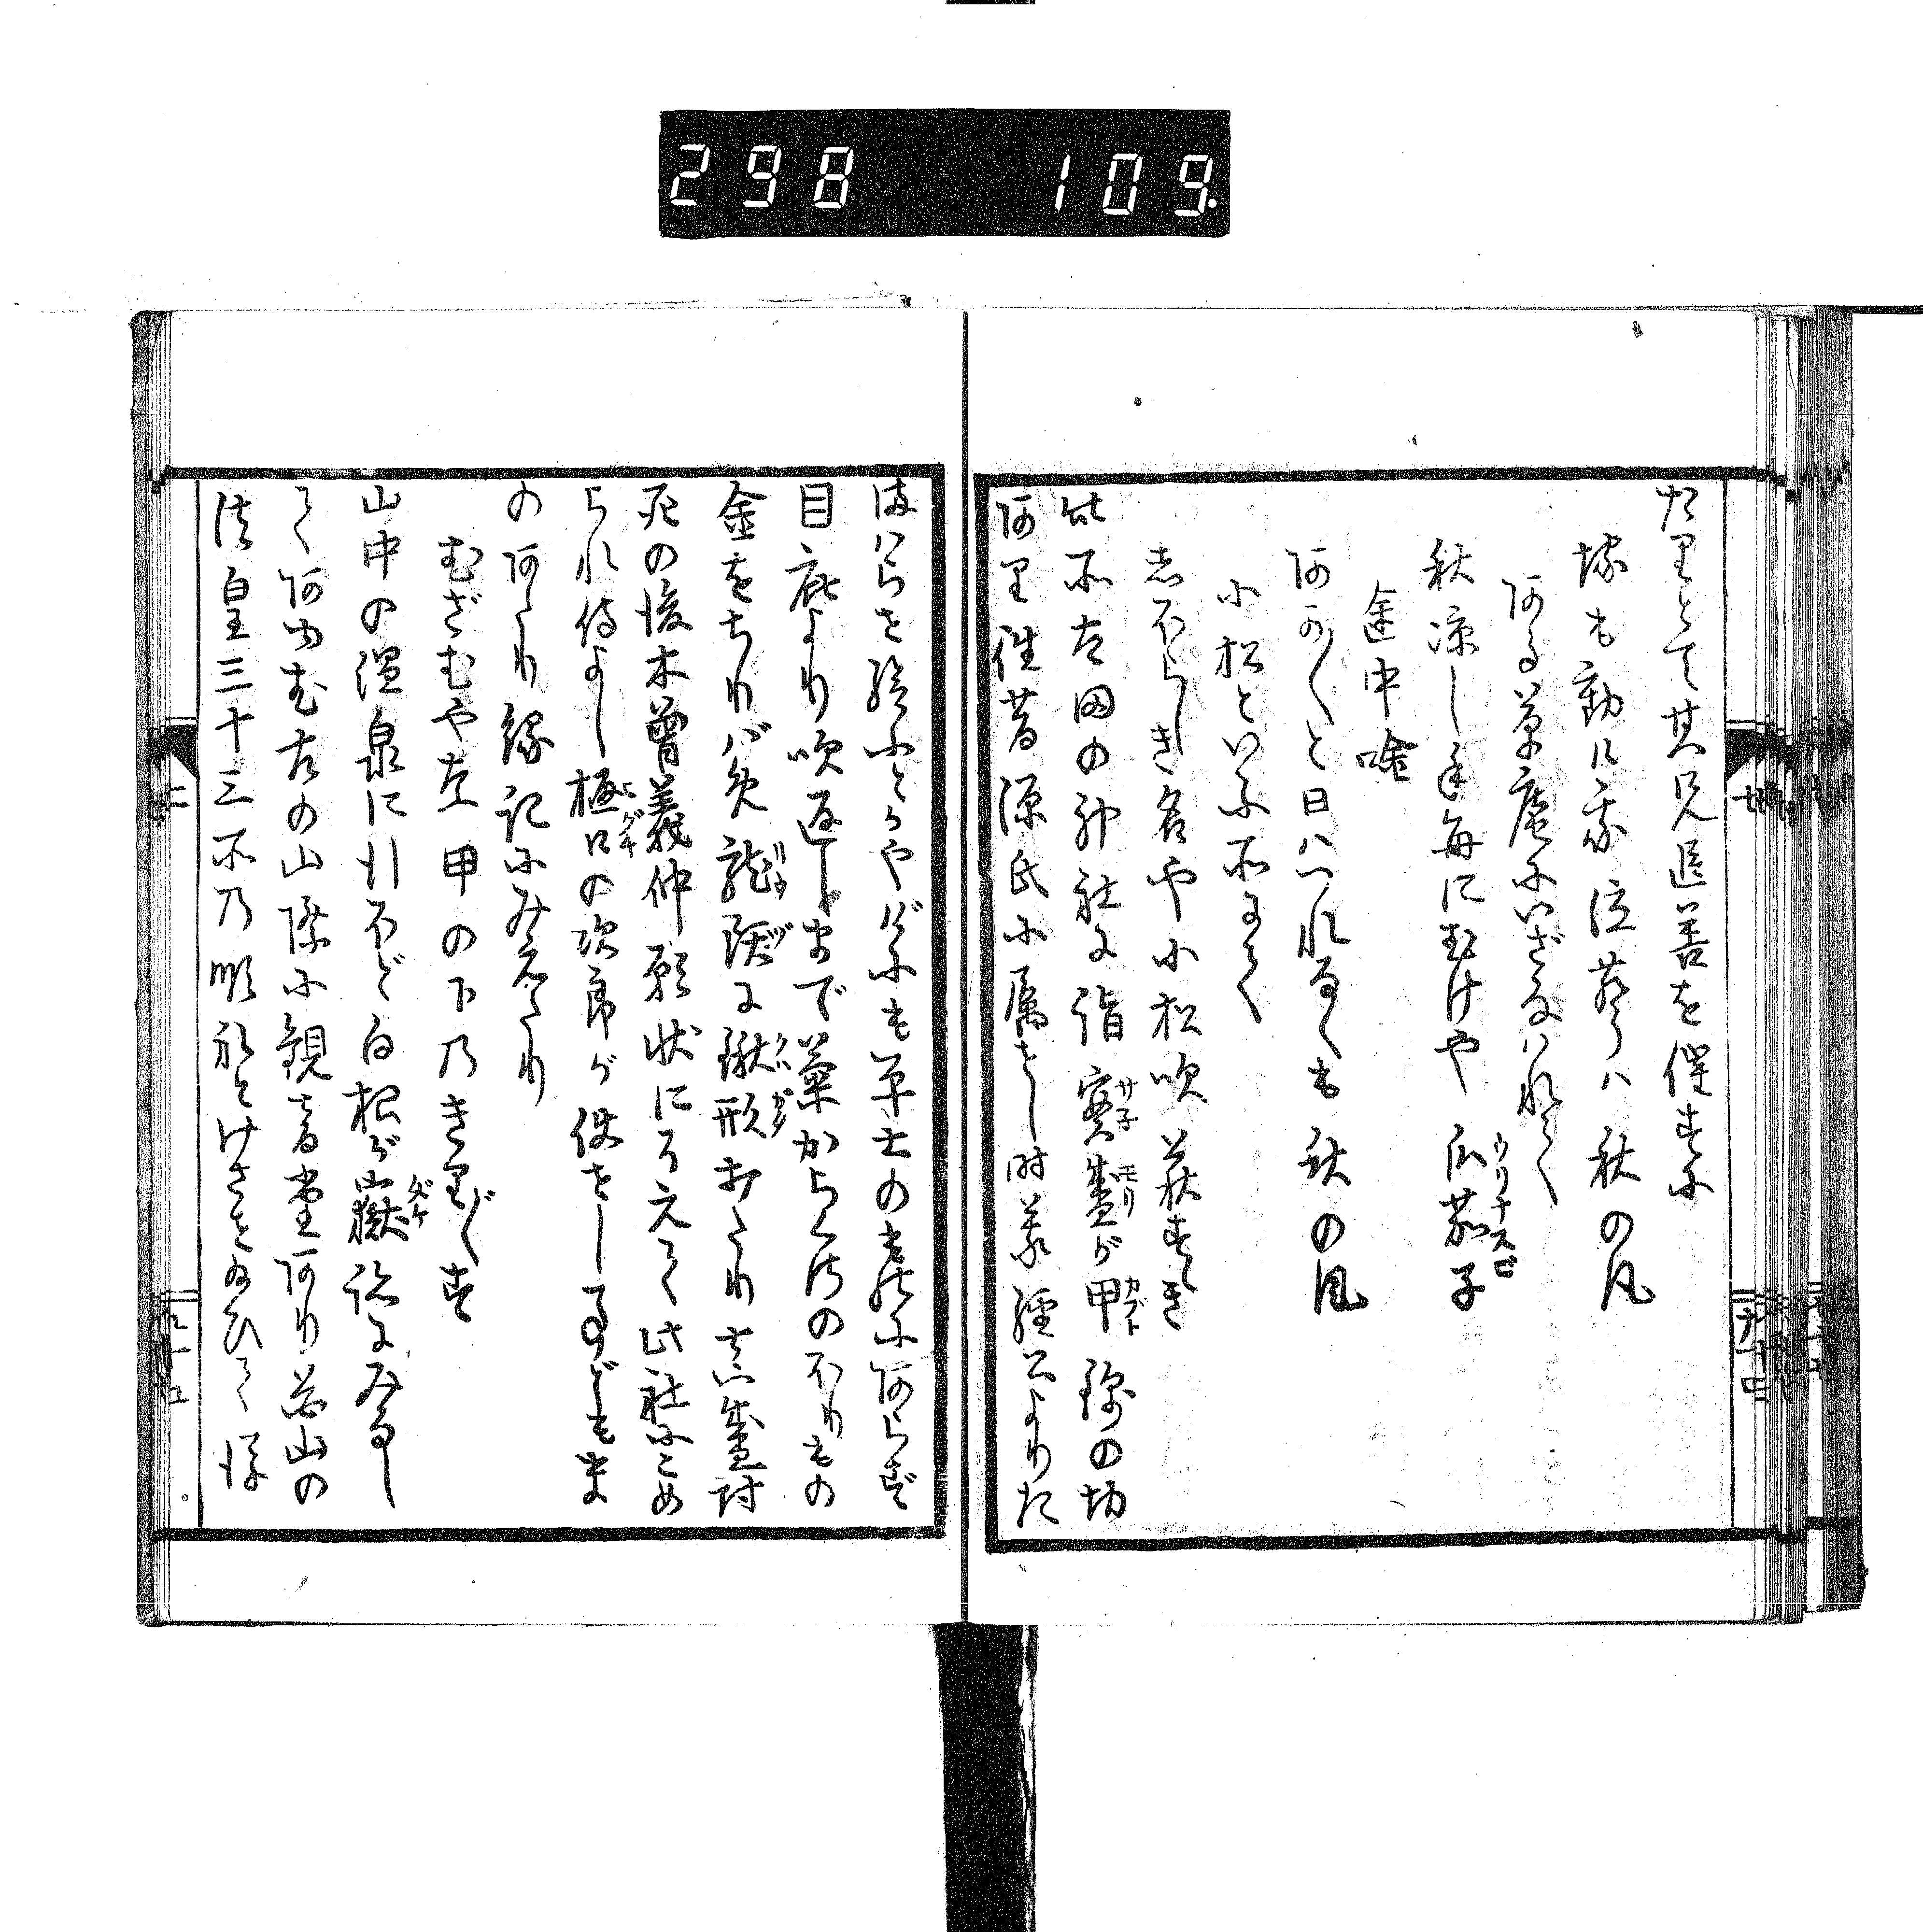 298 109.
たりとて其兄追善を催すに
塚も動け我泣声は秋の風
ある草庵にいざなはれて
秋凉し手毎にむけや瓜茄子
ウリナスビ
途中唫
あか〱と日はつれなくも秋の風
小松といふ所にて
しほらしき名や小松吹萩すゝき
此所太田の神社に詣実盛が甲錦の切
サネ モリ カブト
あり往昔源氏に属せし時義経公よりた
まはらせ給ふとかやげにも平士のものにあらず
目庇より吹返しまで菊からくさのほりもの
金をちりばめ龍頭に鍬形打たり真盛討
クハガタ
死の後木曽義仲願状にそえて此社にこめ
られ侍よし樋口の次郎が使せし事どもま
ヒグチ
のあたり縁記にみえたり
むざむや甲の下のきり〲す
山中の温泉に行ほど白根が嶽跡にみなし
ダケ
てあゆむ左の山際に観音堂あり花山の
法皇三十三所の順礼とげさせ給ひて後